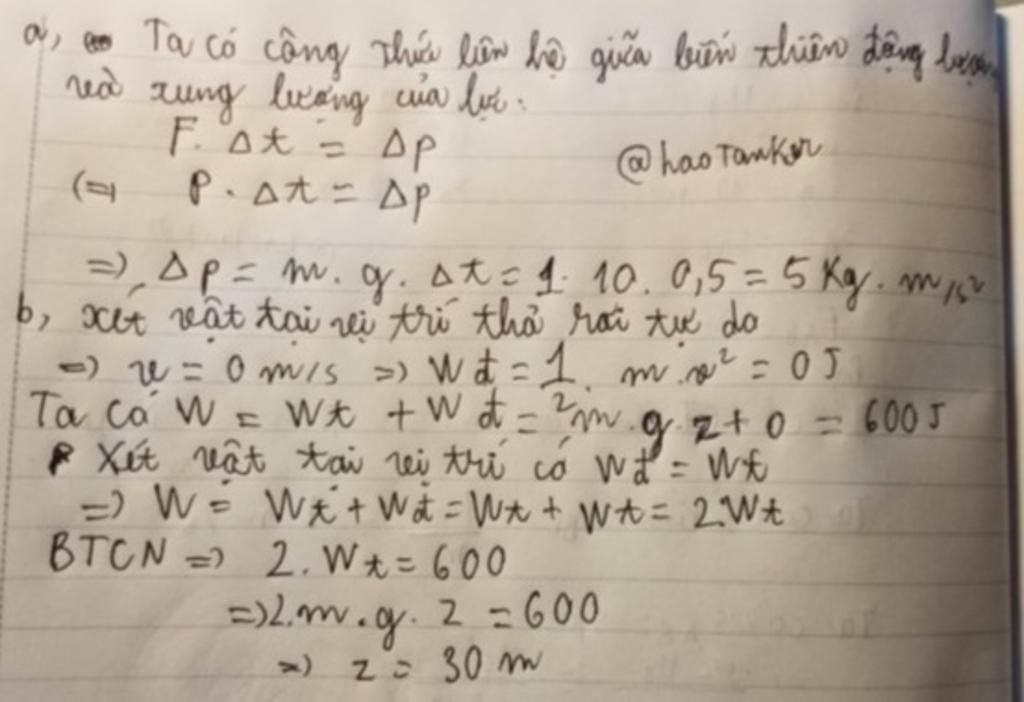 a, Ta có công thức liên hệ giữa biến thiên động lượng
và xung lượng của lực:
F. Δt = Δp
@haoTanker
(=) P. Δt = Δp
=) Δp = m. g. Δt = 1. 10. 0,5 = 5 Kg. m/s²
b, xét vật tại vị trí thả rơi tự do
=) v = 0 m/s =) Wđ = 1/2. m.v² = 0 J
Ta có W = Wt + Wđ = m.g.z + 0 = 600J
Xét vật tại vị trí có Wđ = Wt
=) W = Wt + Wđ = Wt + Wt = 2.Wt
BTCN =) 2. Wt = 600
=) 2.m.g. z = 600
=) z = 30 m